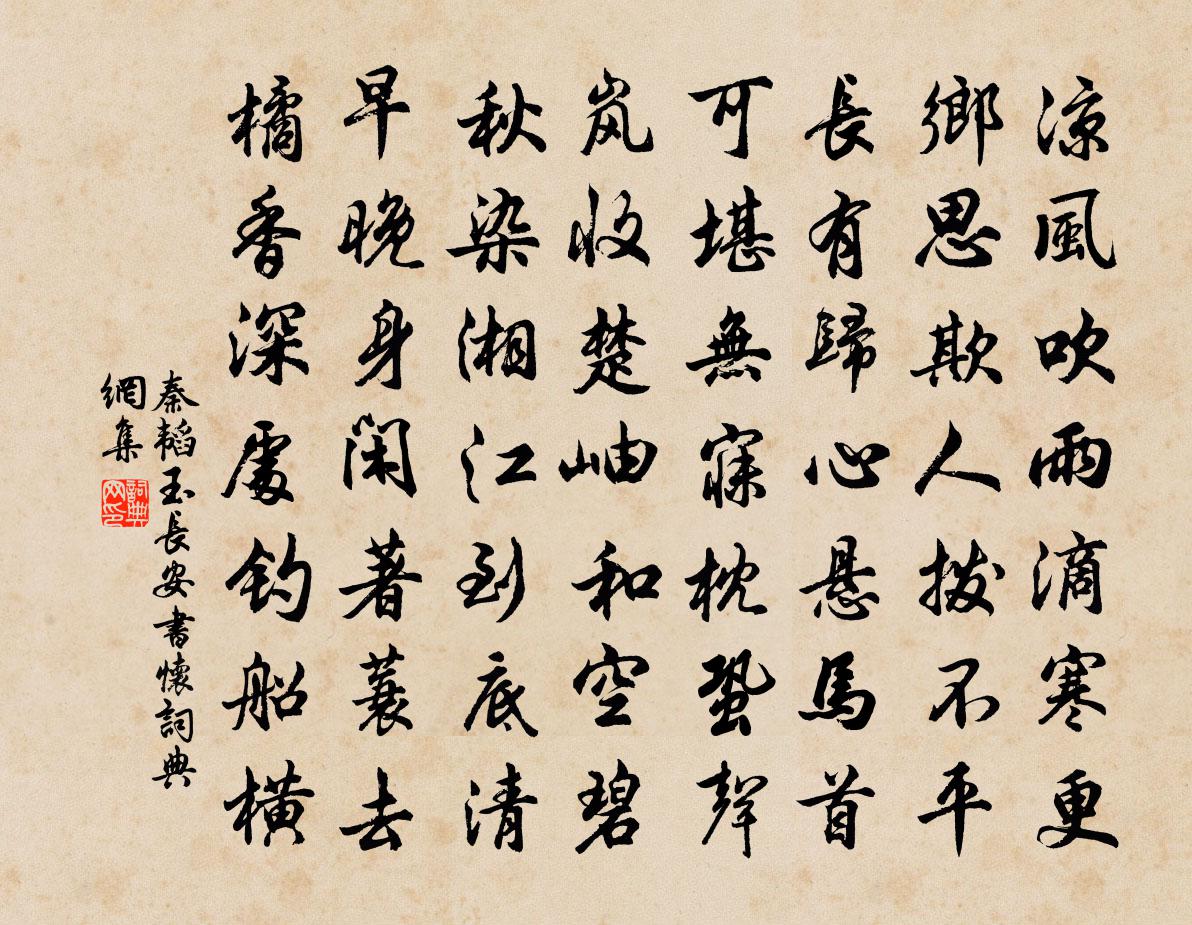 涼風吹雨滴寒更
鄉思欺人撥不平
長有歸心懸馬首
可堪無寐枕蛩聲
岚收楚岫和空碧
秋染湘江到底清
早晚身閑著蓑去
橘香深處釣船橫
秦韜玉長安書懷詞典
網集
詞典
网印